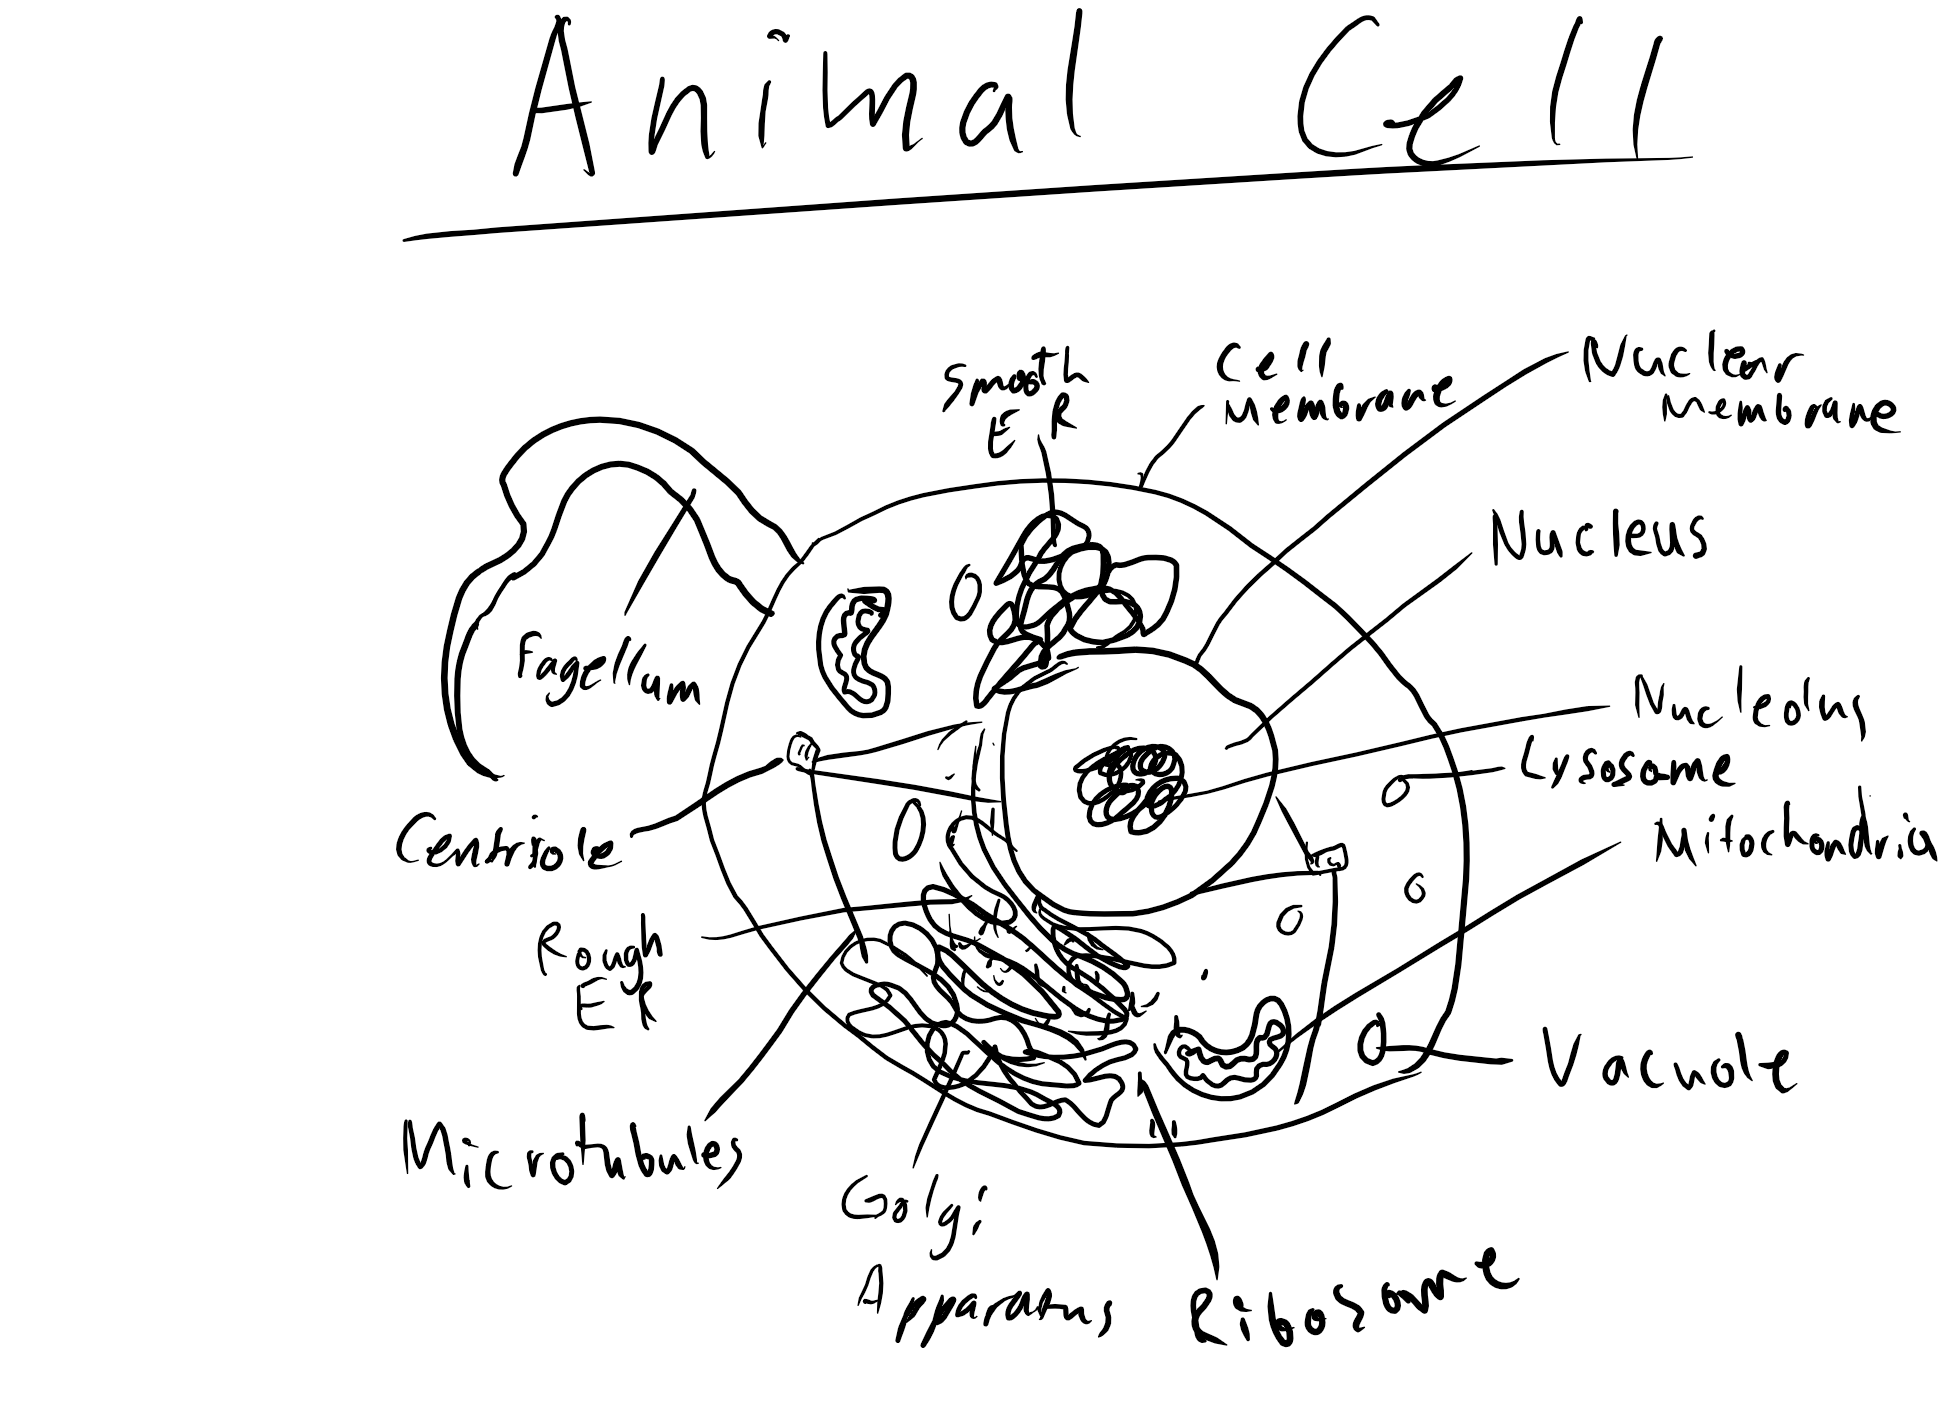 Animal Cell
Smooth
ER
Cell
Membrane
Nuclear
Membrane
Nucleus
Fagellum
Nucleolus
Lysosome
Mitochondria
Centriole
Rough
ER
Vacuole
Microtubules
Golgi
Apparatus
Ribosome